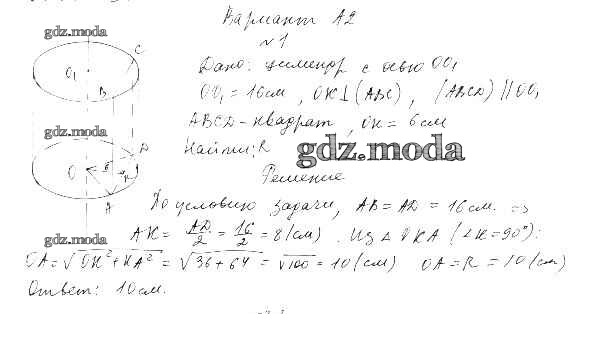 Вариант А2
№1
Дано: цилиндр с осью OO₁
OO₁ = 16см, OK⊥(ABC), (ABCD) || OO₁
ABCD - квадрат, OK = 6см
Найти: R
Решение
По условию задачи, AB = AD = 16 см. =>
AK = AD/2 = 16/2 = 8 (см). Из △OKA (∠K=90°):
OA = √OK² + KA² = √36 + 64 = √100 = 10 (см) OA = R = 10 (см)
Ответ: 10 см.
gdz.moda
gdz.moda
gdz.moda
gdz.moda
C
O₁
B
O
A